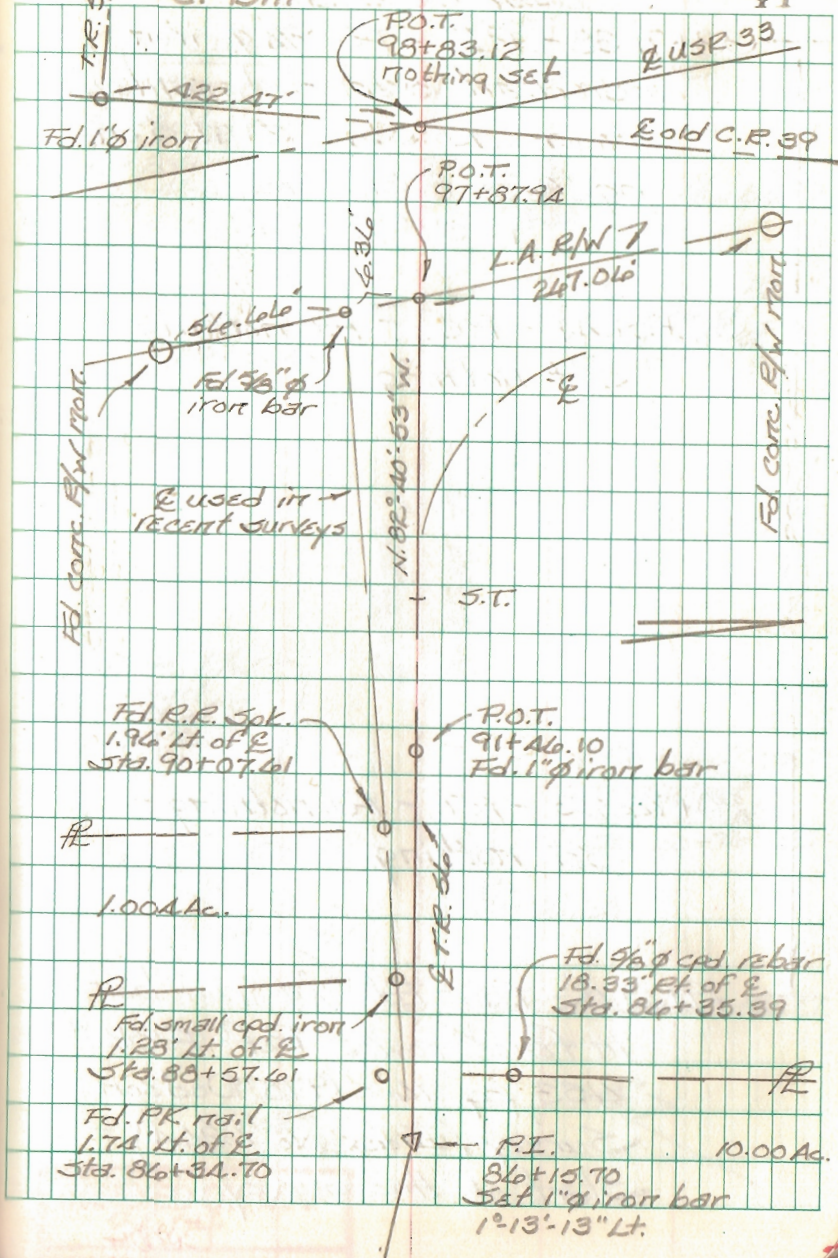 P.O.T.
98+83.12
nothing set
℄ USR 33
T.R. 5
422.47'
Fd. 1"ø iron
℄ old C.R. 39
P.O.T.
97+87.94
6.36'
L.A. R/W
247.06'
56.66'
Fd. 5/8"ø
iron bar
Fd. conc. R/W Mon.
Fd. conc. R/W Mon.
℄
N.82°-40'-53"W.
℄ used in
recent surveys
S.T.
Fd. R.R. Spk.
1.96' Lt. of ℄
Sta. 90+07.61
P.O.T.
91+46.10
Fd. 1"ø iron bar
PL
℄ T.R. 56
1.004 Ac.
PL
Fd. small cpd. iron
1.23' Lt. of ℄
Sta. 88+57.61
Fd. 5/8"ø cpd. rebar
18.33' Rt. of ℄
Sta. 86+35.39
PL
Fd. PK nail
1.74' Lt. of ℄
Sta. 86+34.70
P.I.
86+15.70
Set 1"ø iron bar
1°-13'-13" Lt.
10.00 Ac.